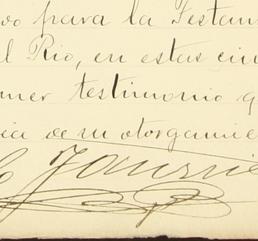 vo para la Testam
l Rio, en estas cin
mer testimonio q
cia de su otorgamie